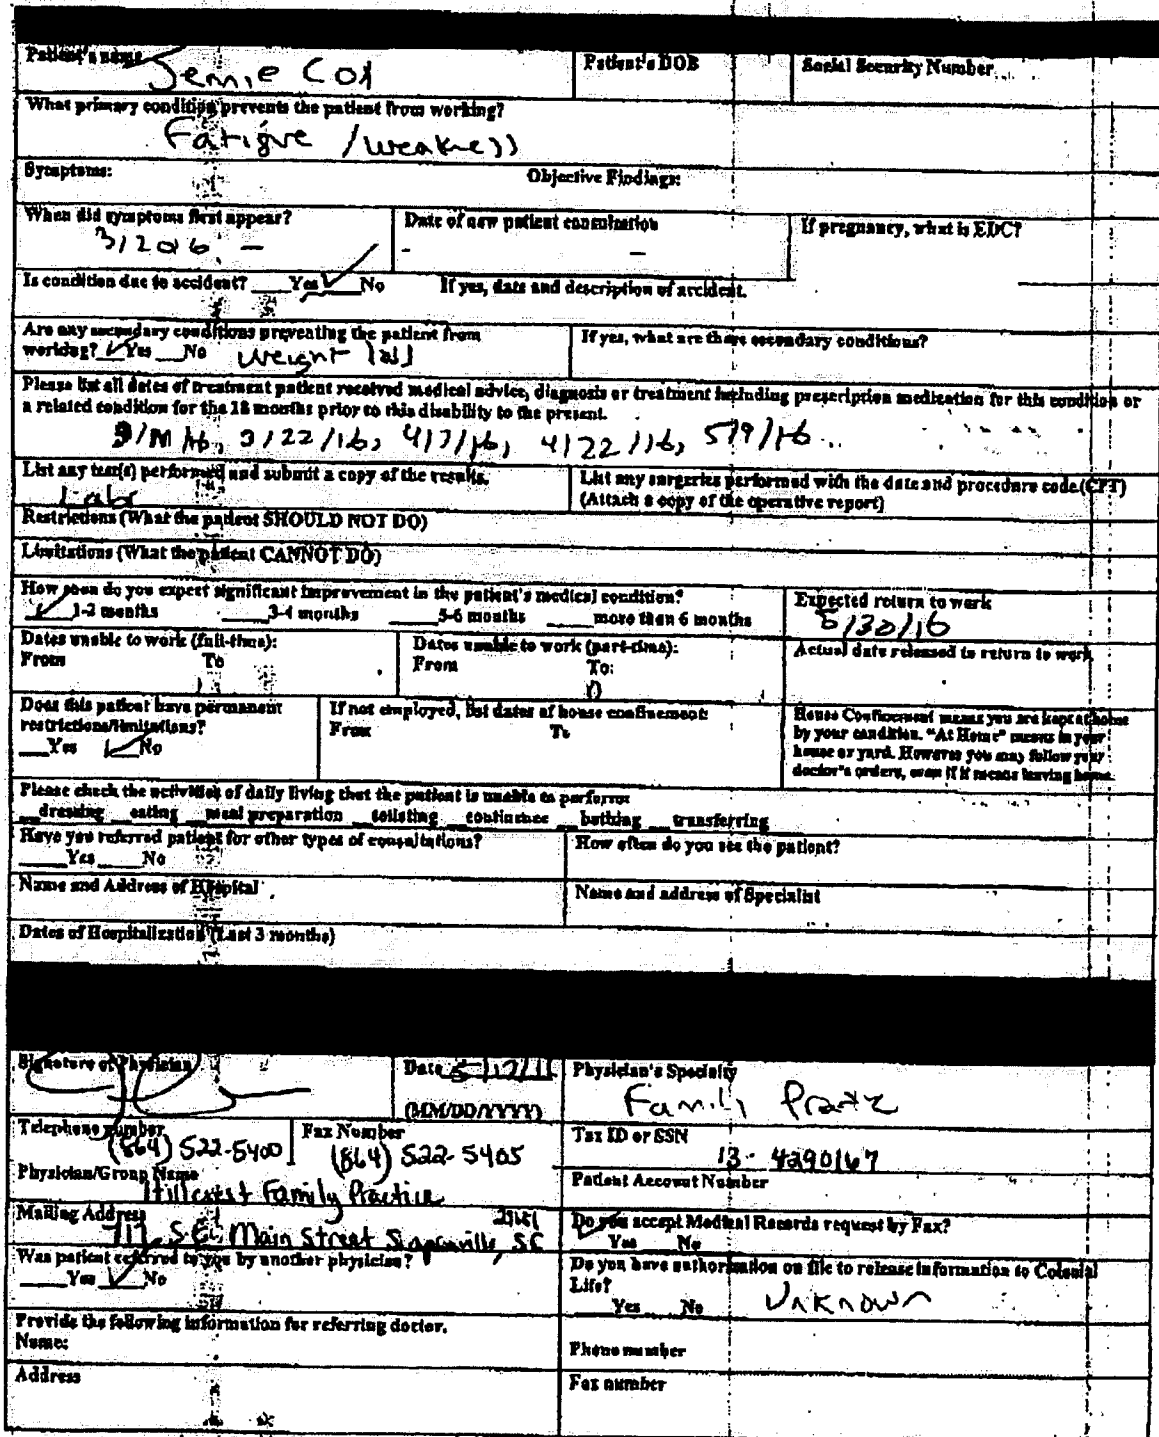 Patient's name
Patient's DOB
Social Security Number
What primary condition prevents the patient from working?
Fatigue / weakness
Symptoms:
Objective Findings:
When did symptoms first appear?
3/2016 -
Date of new patient consultation
-
If pregnancy, what is EDC?
Is condition due to accident? ___Yes ___No
If yes, date and description of accident.
Are any secondary conditions preventing the patient from
working? ___Yes ___No weight loss
If yes, what are there secondary conditions?
Please list all dates of treatment patient received medical advice, diagnosis or treatment including prescription medication for this condition or
a related condition for the 18 months prior to this disability to the present.
3/22/16, 4/7/16, 4/22/16, 5/9/16
List any test(s) performed and submit a copy of the results.
Labs
List any surgeries performed with the date and procedure code.(CPT)
(Attach a copy of the operative report)
Restrictions (What the patient SHOULD NOT DO)
Limitations (What the patient CANNOT DO)
How soon do you expect significant improvement in the patient's medical condition?
___1-2 months ___3-4 months ___5-6 months ___more than 6 months
Expected return to work
5/30/16
Dates unable to work (full-time):
From To
Dates unable to work (part-time):
From To:
Actual date released to return to work
Does this patient have permanent
restrictions/limitations?
___Yes ___No
If not employed, list dates of house confinement:
From To
House Confinement means you are kept at home
by your condition. "At Home" means in your
house or yard. However you may follow your
doctor's orders, even if it means leaving home.
Please check the activities of daily living that the patient is unable to perform
__dressing __eating __meal preparation __toileting __continence __bathing __transferring
Have you referred patient for other types of consultations?
___Yes ___No
How often do you see the patient?
Name and Address of Hospital
Name and address of Specialist
Dates of Hospitalization (Last 3 months)
Signature of Physician
Date
(MM/DD/YYYY)
Physician's Specialty
Family
Telephone number
(864) 522-5400
Fax Number
(864) 522-5405
Tax ID or SSN
13-4290167
Physician/Group Name
Hillcrest Family Practice
Patient Account Number
Mailing Address
717 S.E. Main Street Simpsonville, SC 29681
Do you accept Medical Records request by Fax?
___Yes ___No
Was patient referred to you by another physician?
___Yes ___No
Do you have authorization on file to release information to Colonial
Life?
___Yes ___No Unknown
Provide the following information for referring doctor.
Name:
Phone number
Address
Fax number